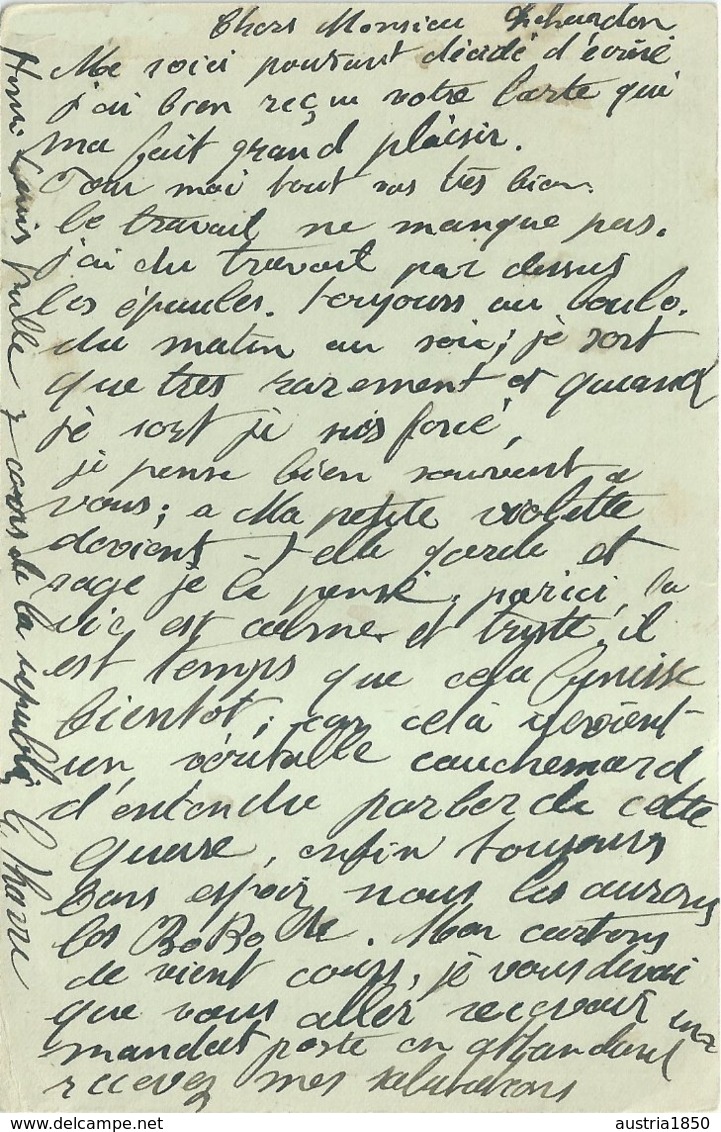 Chers Monsieu
Me voici pourtant décidé d'écrire
j'ai bien reçu votre Carte qui
ma fait grand plaisir.
Pour moi tout vas très bien.
le travail ne manque pas.
j'ai du travail par dessus
les épaules. toujours au boulo.
du matin au soir; je sort
que très rarement et quand
je sort je suis forcé,
je pense bien souvent a
vous; a Ma petite violette
devient-t elle garde et
sage je le pense. par ici, la
vie est calme et triste il
est temps que cela finisse
bientot; car celà devient
un véritable cauchemard
d'entendre parler de cette
guerre, enfin toujours
bons espoir nous les aurons
les Bo Bo. Mon cartons
de vient court, je vous dirai
que vous aller recevoir un
mandat poste en attendant
recevez mes salutations
Henri Louis 7 cours de la republiq
austria1850